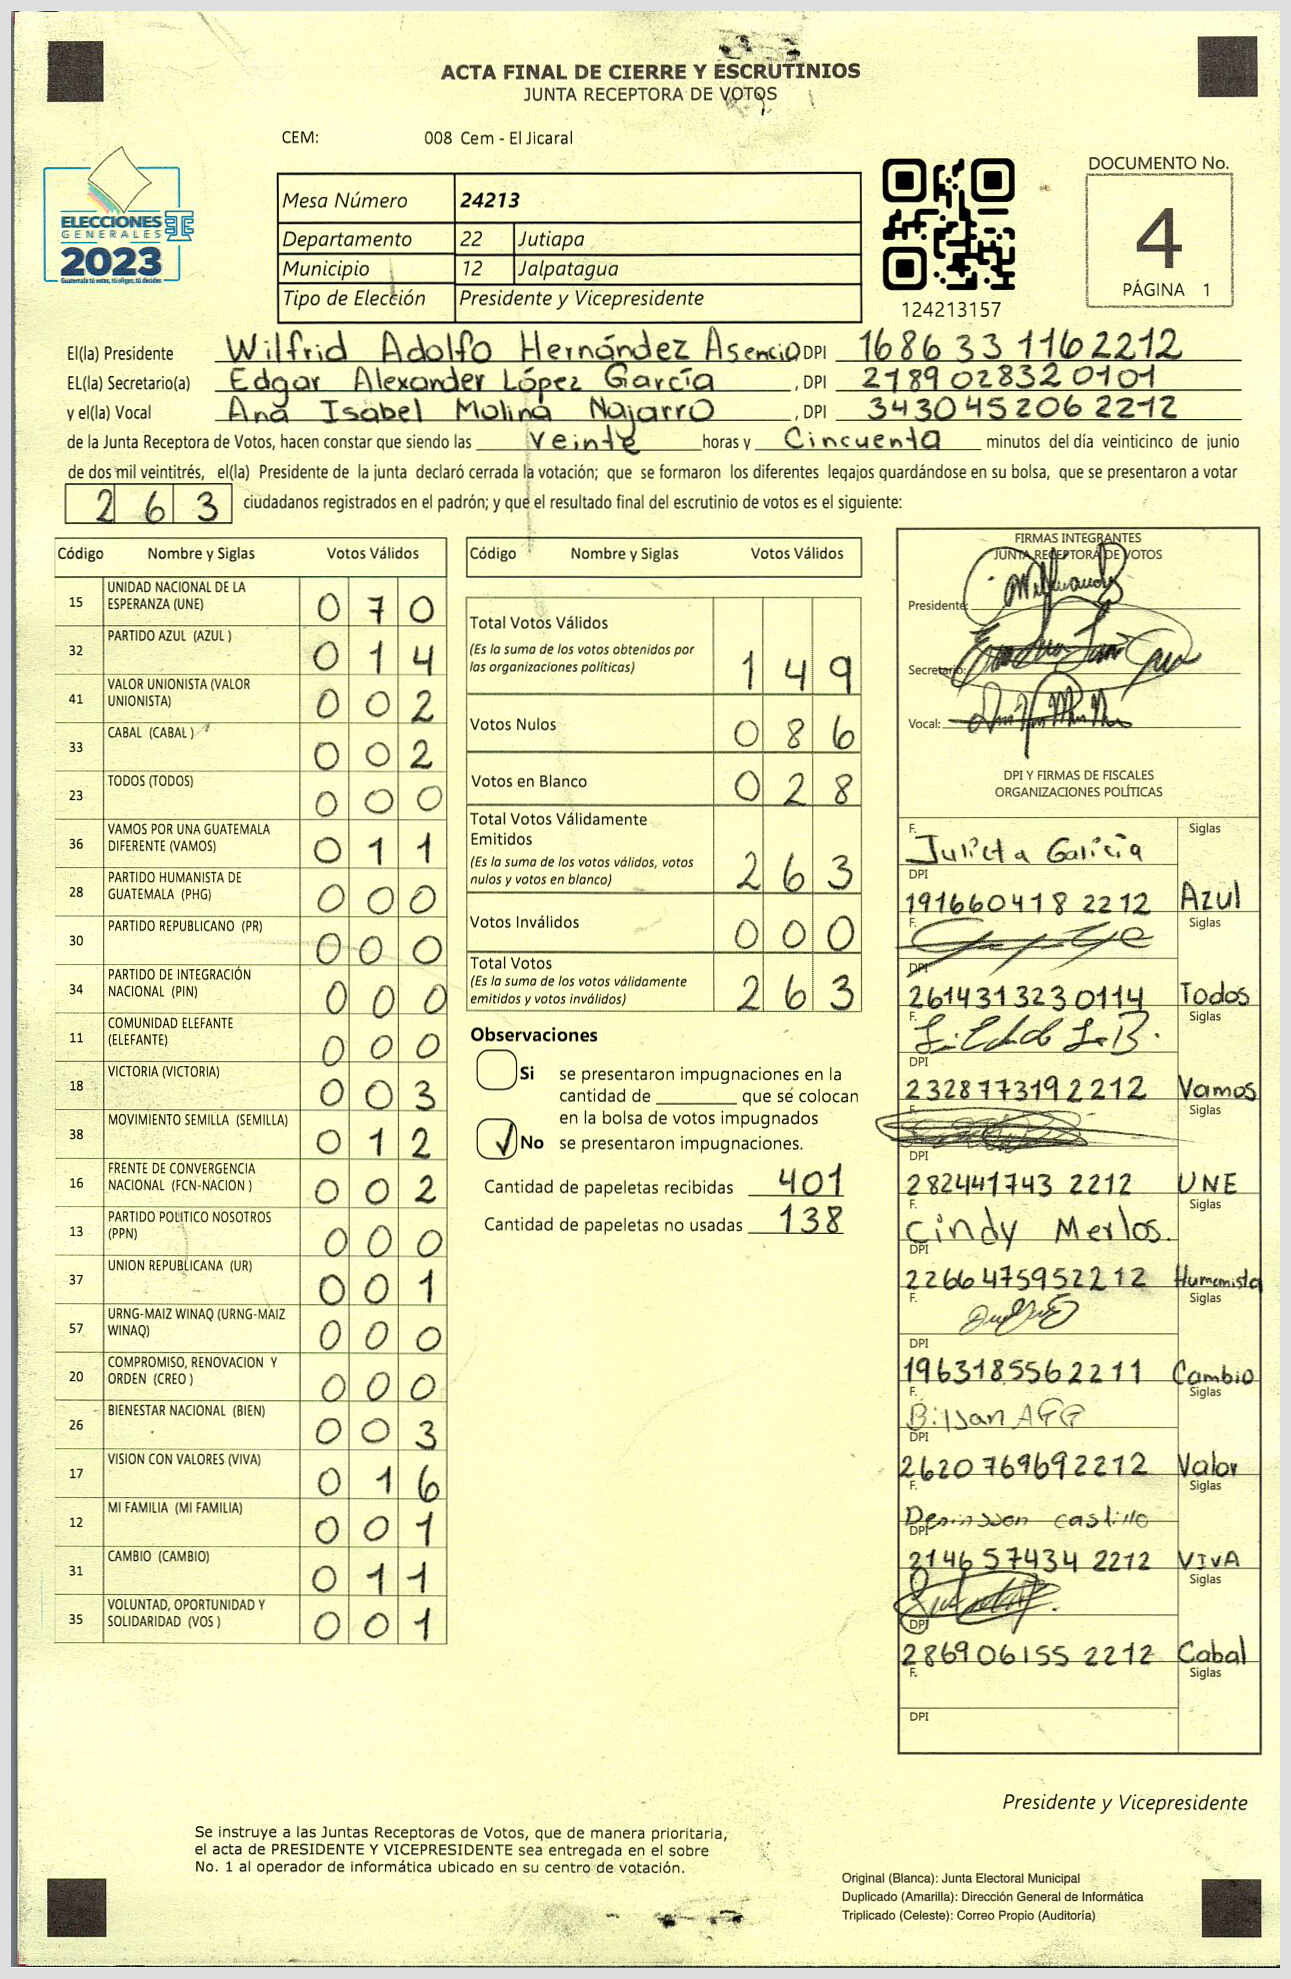 ACTA FINAL DE CIERRE Y ESCRUTINIOS
JUNTA RECEPTORA DE VOTOS
CEM: 008 Cem - El Jicaral
ELECCIONES
GENERALES
2023
Guatemala tú votas, tú eliges, tú decides
Mesa Número 24213
Departamento 22 Jutiapa
Municipio 12 Jalpatagua
Tipo de Elección Presidente y Vicepresidente
124213157
DOCUMENTO No.
4
PÁGINA 1
El(la) Presidente Wilfrid Adolfo Hernández Asencio DPI 1686 33 116 2212
EL(la) Secretario(a) Edgar Alexander López García , DPI 2189 02832 0101
y el(la) Vocal Ana Isabel Molina Najarro , DPI 3430 45206 2212
de la Junta Receptora de Votos, hacen constar que siendo las veinte horas y Cincuenta minutos del día veinticinco de junio
de dos mil veintitrés, el(la) Presidente de la junta declaró cerrada la votación; que se formaron los diferentes legajos quardándose en su bolsa, que se presentaron a votar
263 ciudadanos registrados en el padrón; y que el resultado final del escrutinio de votos es el siguiente:
Código Nombre y Siglas Votos Válidos
15 UNIDAD NACIONAL DE LA ESPERANZA (UNE) 070
32 PARTIDO AZUL (AZUL ) 014
41 VALOR UNIONISTA (VALOR UNIONISTA) 002
33 CABAL (CABAL ) 002
23 TODOS (TODOS) 000
36 VAMOS POR UNA GUATEMALA DIFERENTE (VAMOS) 011
28 PARTIDO HUMANISTA DE GUATEMALA (PHG) 000
30 PARTIDO REPUBLICANO (PR) 000
34 PARTIDO DE INTEGRACIÓN NACIONAL (PIN) 000
11 COMUNIDAD ELEFANTE (ELEFANTE) 000
18 VICTORIA (VICTORIA) 003
38 MOVIMIENTO SEMILLA (SEMILLA) 012
16 FRENTE DE CONVERGENCIA NACIONAL (FCN-NACION ) 002
13 PARTIDO POLITICO NOSOTROS (PPN) 000
37 UNION REPUBLICANA (UR) 001
57 URNG-MAIZ WINAQ (URNG-MAIZ WINAQ) 000
20 COMPROMISO, RENOVACION Y ORDEN (CREO ) 000
26 BIENESTAR NACIONAL (BIEN) 003
17 VISION CON VALORES (VIVA) 016
12 MI FAMILIA (MI FAMILIA) 001
31 CAMBIO (CAMBIO) 011
35 VOLUNTAD, OPORTUNIDAD Y SOLIDARIDAD (VOS ) 001
Código Nombre y Siglas Votos Válidos
Total Votos Válidos 149
(Es la suma de los votos obtenidos por
las organizaciones políticas)
Votos Nulos 086
Votos en Blanco 028
Total Votos Válidamente
Emitidos 263
(Es la suma de los votos válidos, votos
nulos y votos en blanco)
Votos Inválidos 000
Total Votos 263
(Es la suma de los votos válidamente
emitidos y votos inválidos)
Observaciones
Si se presentaron impugnaciones en la
cantidad de ________ que se colocan
en la bolsa de votos impugnados
No se presentaron impugnaciones.
Cantidad de papeletas recibidas 401
Cantidad de papeletas no usadas 138
FIRMAS INTEGRANTES
JUNTA RECEPTORA DE VOTOS
Presidente:
Secretario:
Vocal:
DPI Y FIRMAS DE FISCALES
ORGANIZACIONES POLÍTICAS
F. Julieta Galicia Siglas
DPI 191660418 2212 Azul
F. Siglas
DPI 261431323 0114 Todos
F. Siglas
DPI 232877319 2212 Vamos
F. Siglas
DPI 282441743 2212 UNE
F. Cindy Merlos. Siglas
DPI 2266 47595 2212 Humanista
F. Siglas
DPI 196318556 2211 Cambio
F. Siglas
DPI 2620 76969 2212 Valor
F. Castillo Siglas
DPI 2146 57434 2212 VIVA
F. Siglas
DPI 286906155 2212 Cabal
F. Siglas
DPI
Presidente y Vicepresidente
Se instruye a las Juntas Receptoras de Votos, que de manera prioritaria,
el acta de PRESIDENTE Y VICEPRESIDENTE sea entregada en el sobre
No. 1 al operador de informática ubicado en su centro de votación.
Original (Blanca): Junta Electoral Municipal
Duplicado (Amarilla): Dirección General de Informática
Triplicado (Celeste): Correo Propio (Auditoría)